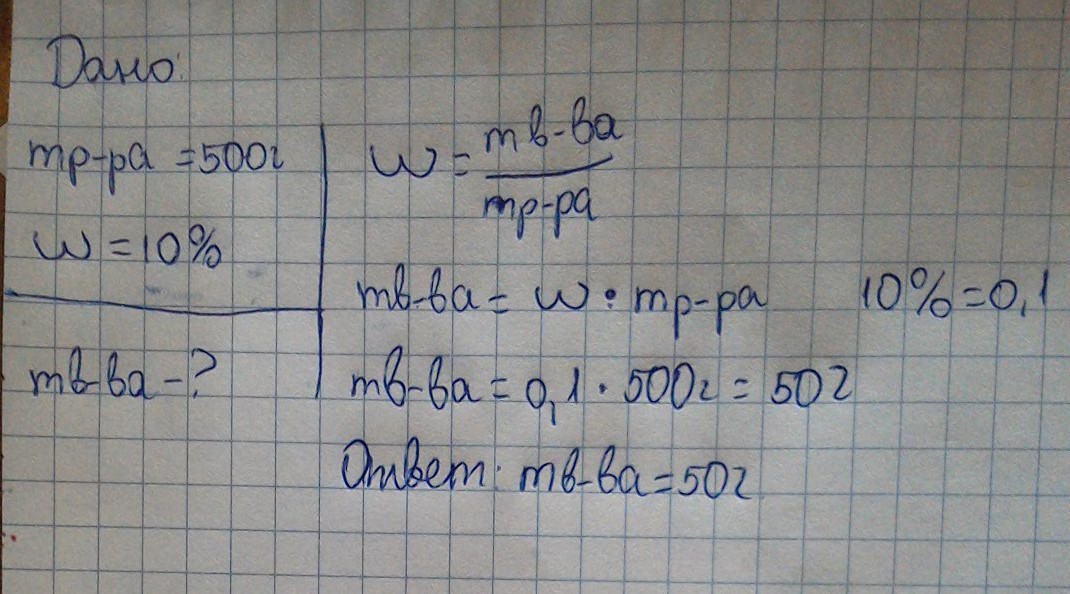 Дано:
mр-ра = 500г
w = 10%
mв-ва - ?
w = mв-ва / mр-ра
mв-ва = w · mр-ра 10% = 0,1
mв-ва = 0,1 · 500г = 50г
Ответ: mв-ва = 50г